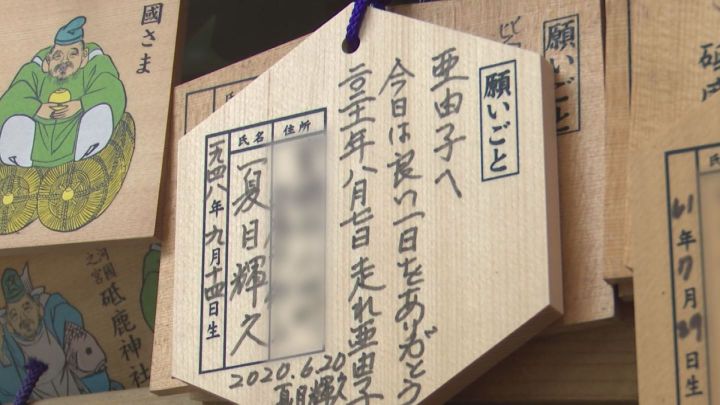 願いごと
亜由子へ
今日は良い一日をありがとう
二〇二一年八月七日走れ亜由子
住所
氏名
夏目輝久
一九四八年九月十四日生
2020.6.20
夏目輝久
國さま
砥鹿神社
願いごと
61年7月29日生